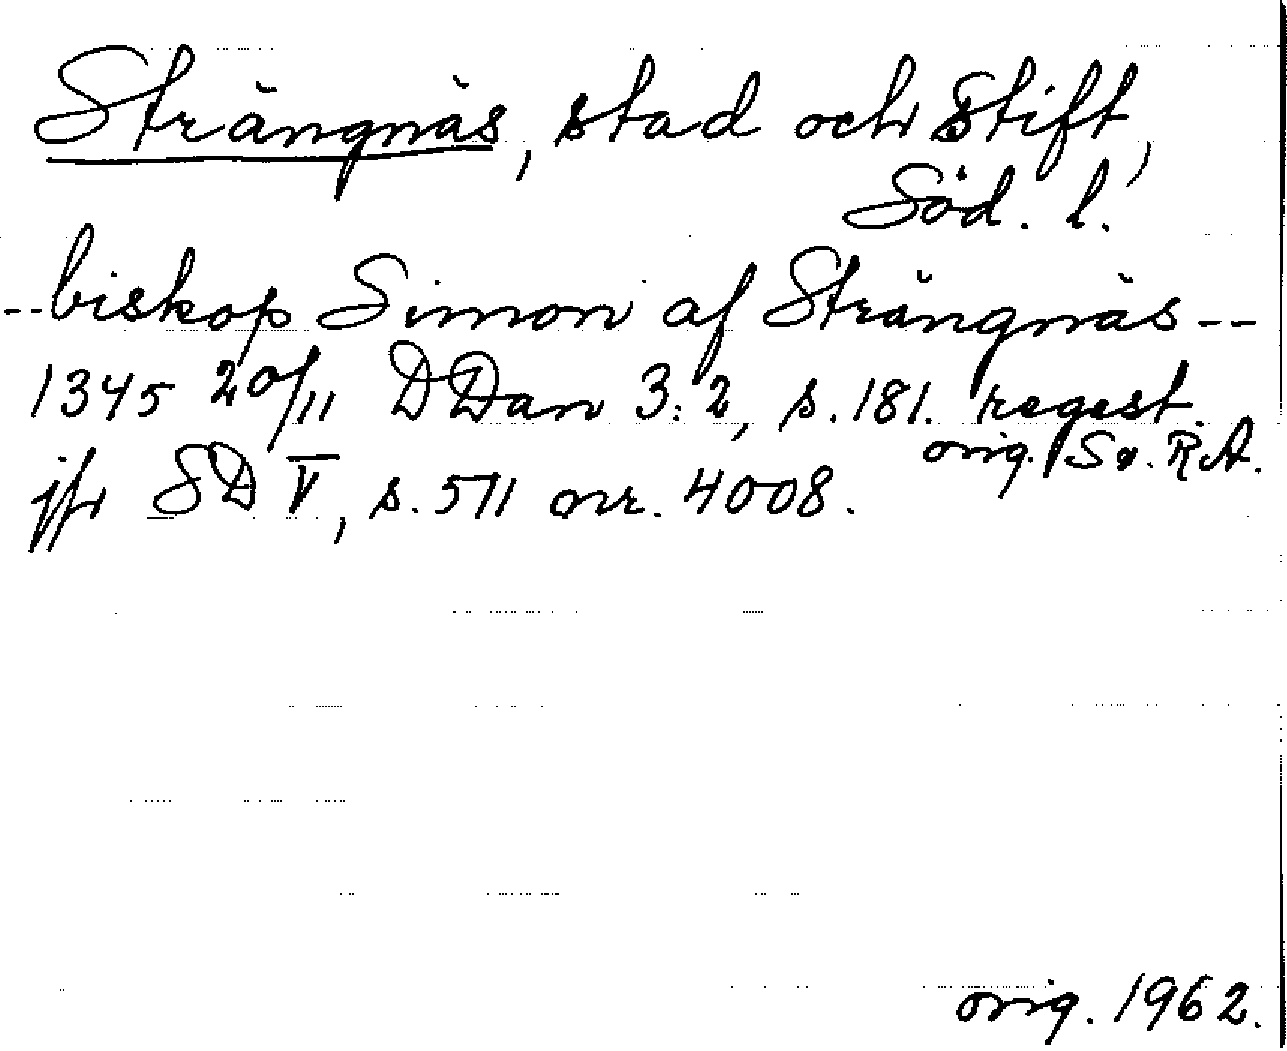 Strängnäs, stad och Stift,
Söd. l.
--biskop Simon af Strängnäs--
1345 20/11 DDan 3:2, s. 181. regest.
orig. Sv. R.A.
jfr SD V, s. 571 nr. 4008.
orig. 1962.